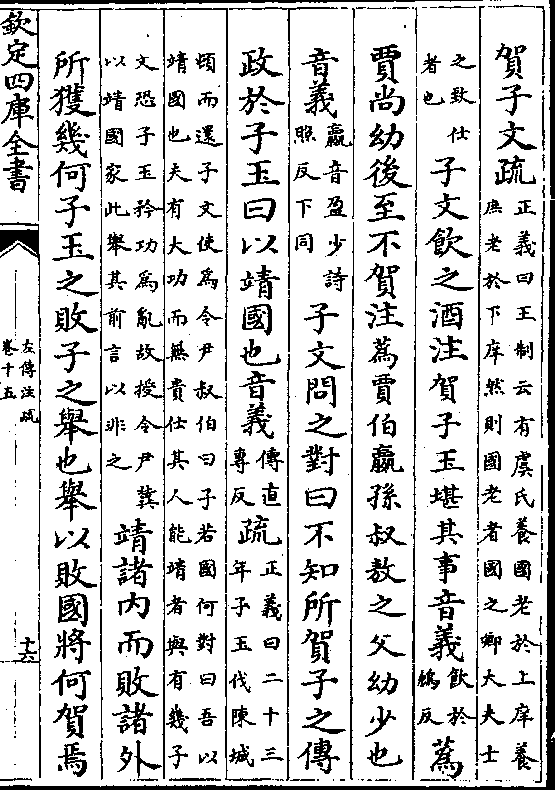 賀子文疏正義曰王制云有虞氏養國老於上庠養
庶老於下庠然則國老者國之卿大夫士
之致仕
者也子文飲之酒注賀子玉堪其事音義飲於
鴆反蒍
賈尚幼後至不賀注蒍賈伯嬴孫叔敖之父幼少也
音義嬴音盈少詩
照反下同子文問之對曰不知所賀子之傳
政於子玉曰以靖國也音義傳直
專反疏正義曰二十三
年子玉伐陳城
頓而還子文使為令尹叔伯曰子若國何對曰吾以
靖國也夫有大功而無貴仕其人能靖者與有幾子
文恐子玉矜功為亂故授令尹兾
以靖國家此舉其前言以非之靖諸内而敗諸外
所獲幾何子玉之敗子之舉也舉以敗國將何賀焉
欽定四庫全書
左傳注疏
卷十五
十六